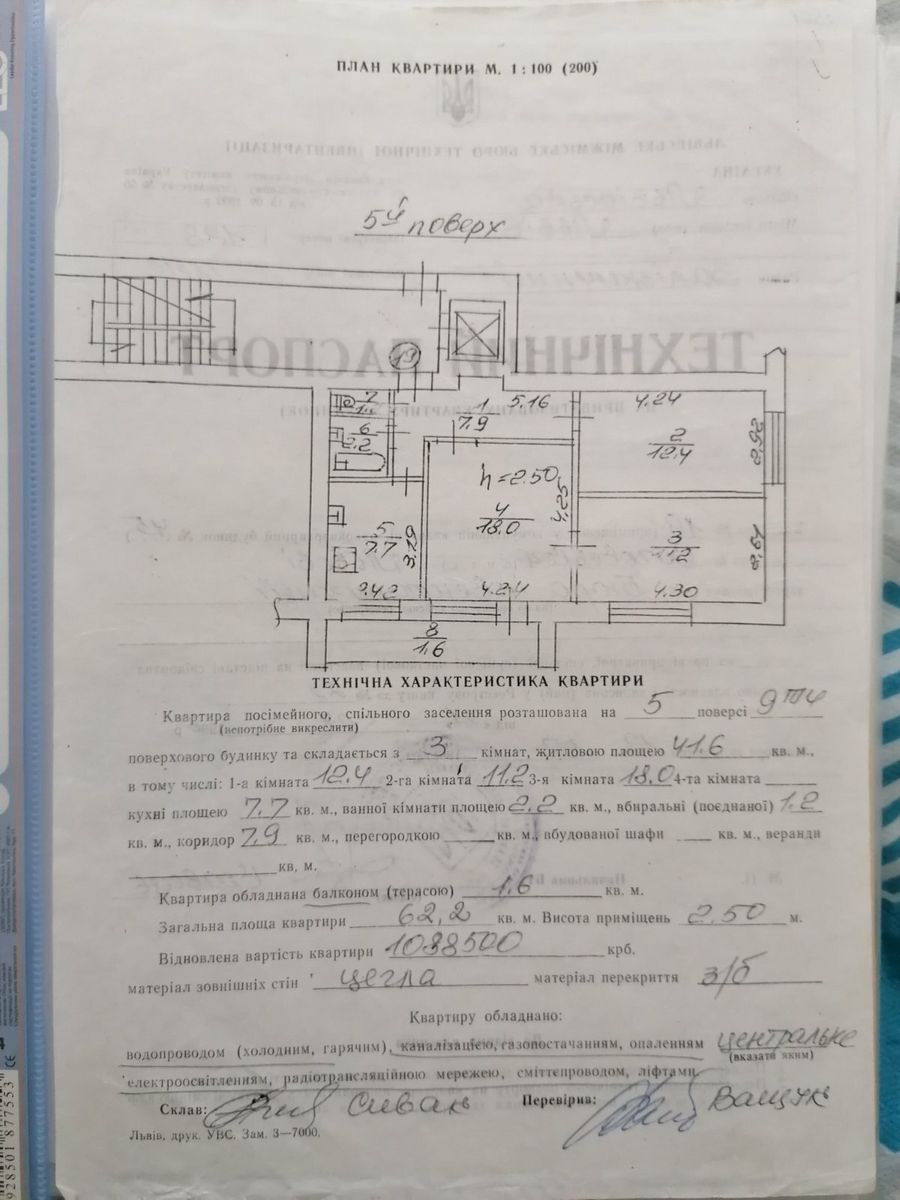 ПЛАН КВАРТИРИ М. 1:100 (200)
5й поверх
19
7
1.2
6
2.2
1
7.9
5.16
4.24
2
12.4
2.92
h=2.50
4
18.0
4.25
5
7.7
3.29
3
11.2
2.42
4.24
4.30
8
1.6
ТЕХНІЧНА ХАРАКТЕРИСТИКА КВАРТИРИ
Квартира посімейного, спільного заселення розташована на 5 поверсі 9ти
(непотрібне викреслити)
поверхового будинку та складається з 3 кімнат, житловою площею 41.6 кв. м.,
в тому числі: 1-а кімната 12.4 2-га кімната 11.2 3-я кімната 18.0 4-та кімната
кухні площею 7.7 кв. м., ванної кімнати площею 2.2 кв. м., вбиральні (поєднаної) 1.2
кв. м., коридор 7.9 кв. м., перегородкою кв. м., вбудованої шафи кв. м., веранди
кв. м.
Квартира обладнана балконом (терасою) 1.6 кв. м.
Загальна площа квартири 62,2 кв. м. Висота приміщень 2.50 м.
Відновлена вартість квартири 1088500 крб.
матеріал зовнішніх стін цегла матеріал перекриття з/б
Квартиру обладнано:
водопроводом (холодним, гарячим), каналізацією, газопостачанням, опаленням центральне
(вказати яким)
електроосвітленням, радіотрансляційною мережею, сміттепроводом, ліфтами.
Склав: Сивак Перевірив: Ващук
Львів, друк. УВС. Зам. 3—7000.
928501 877553